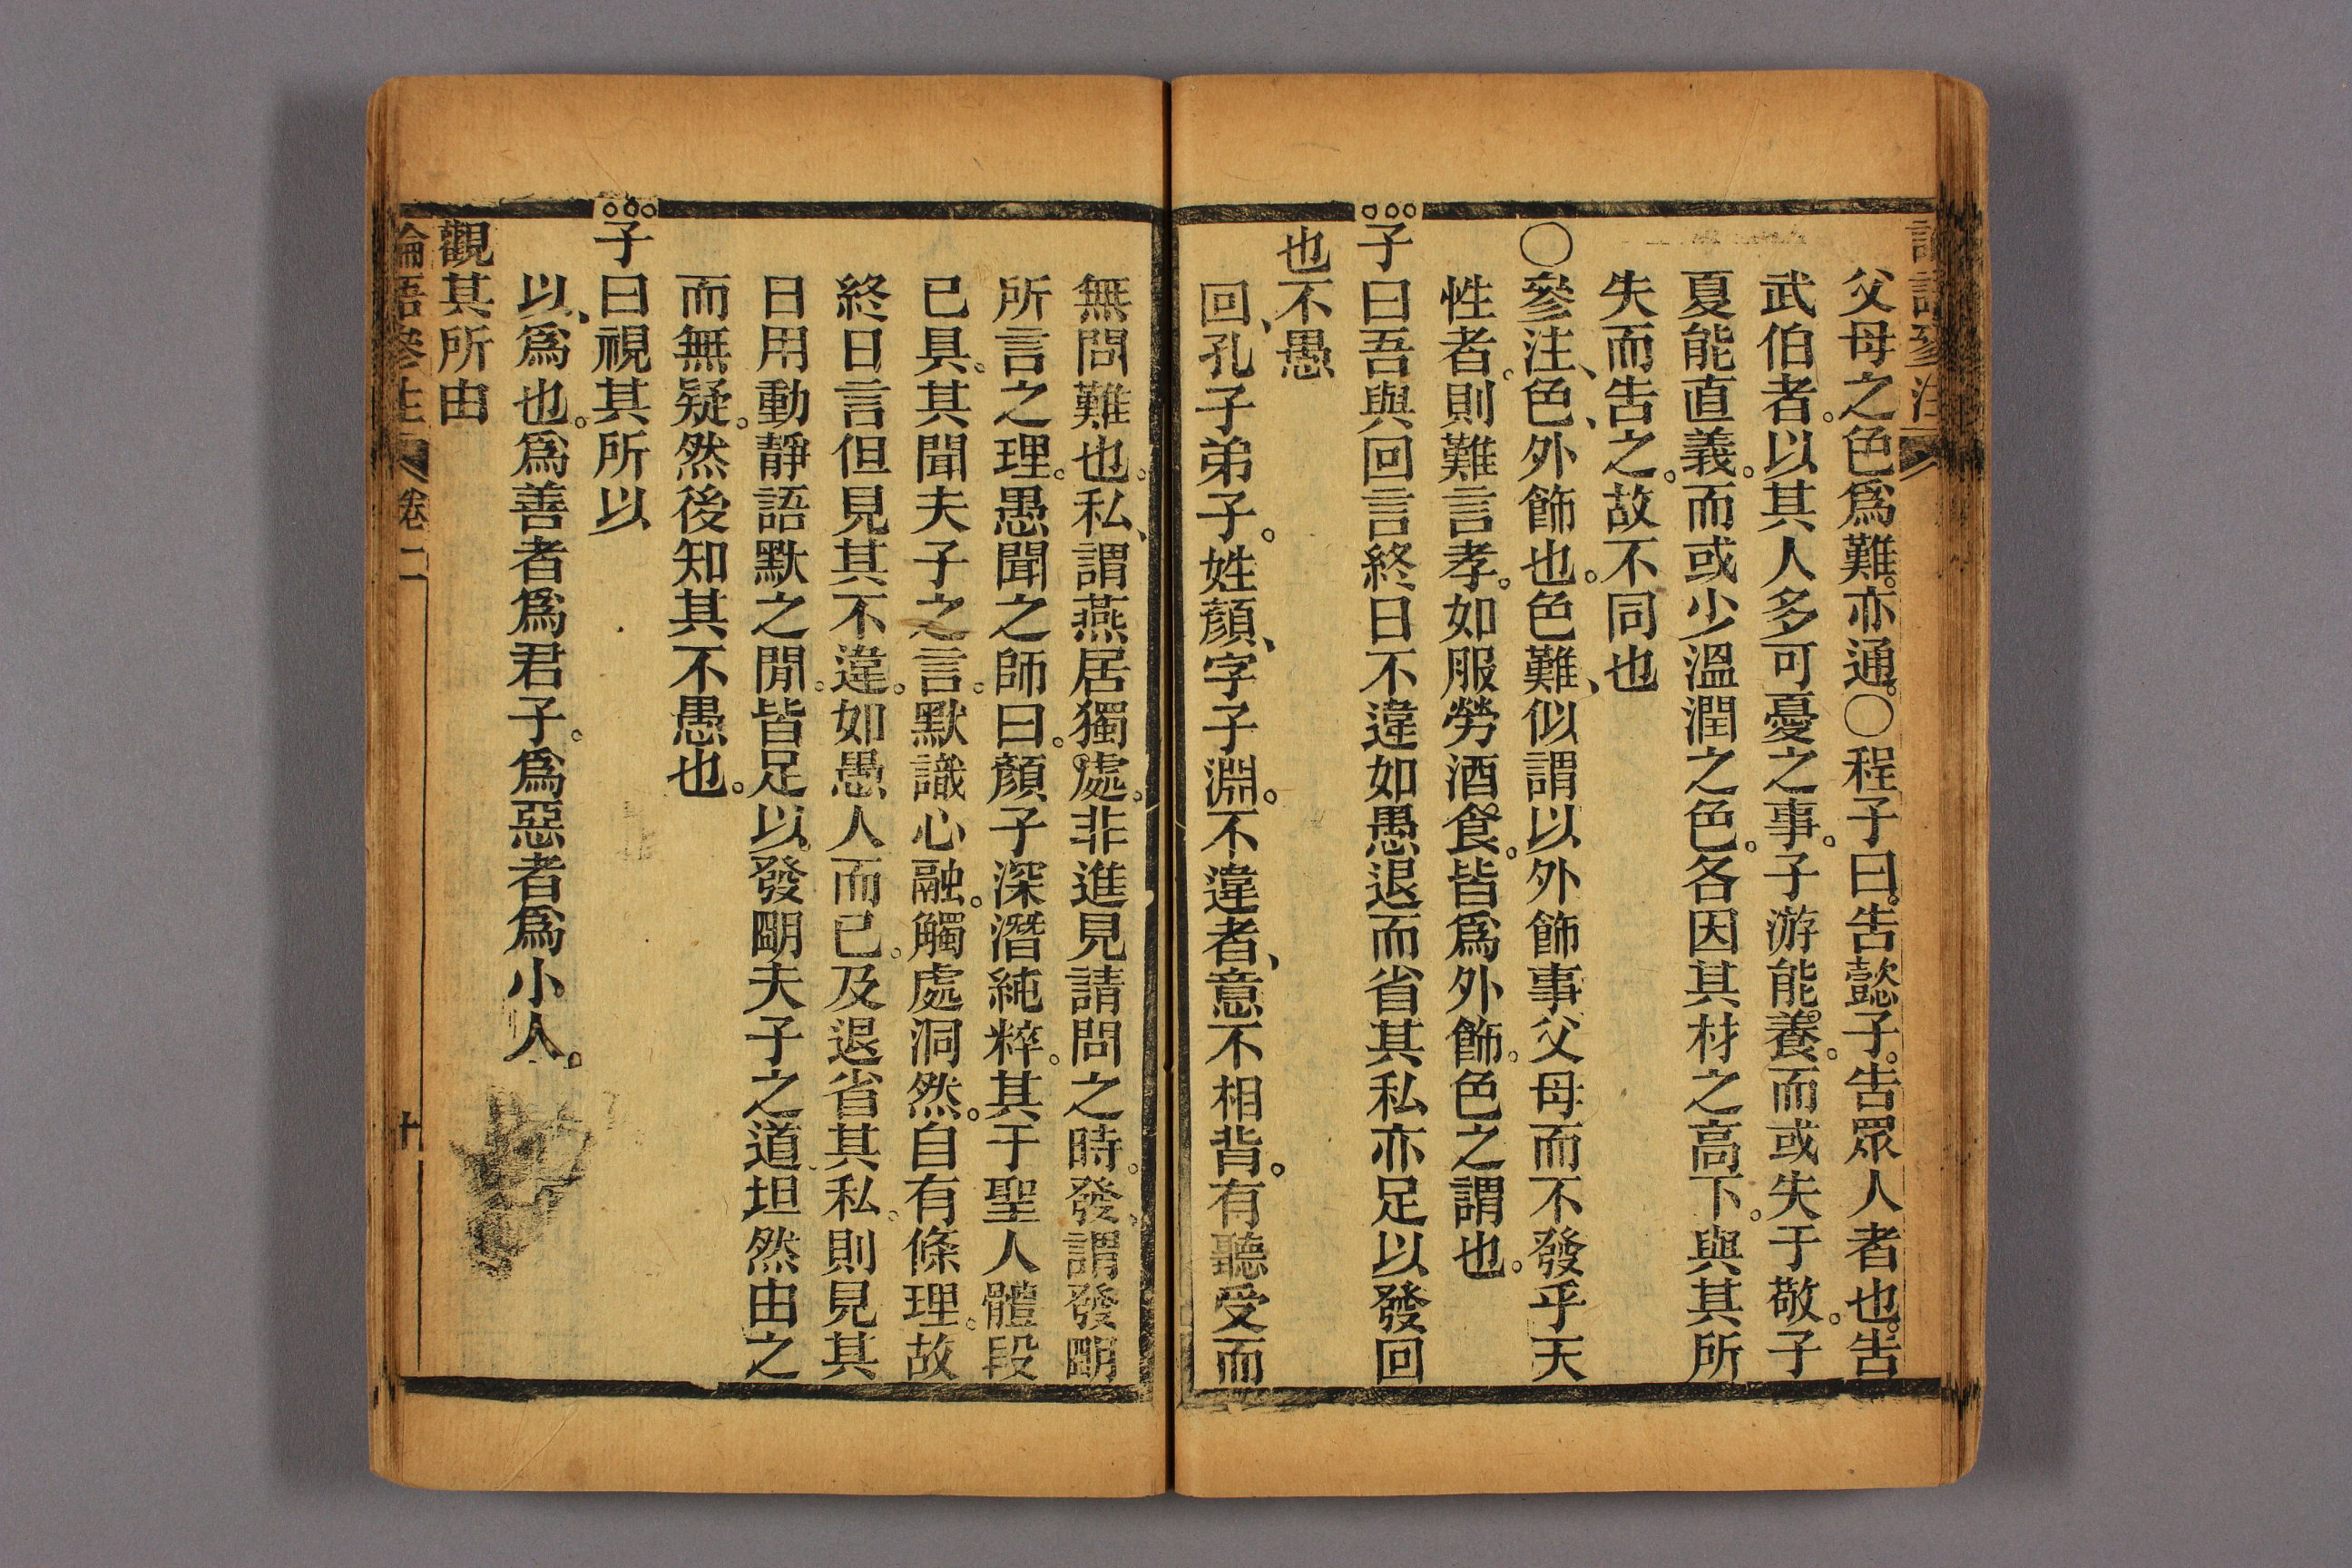 父母之色爲難。亦通。〇程子曰。告懿子。告眾人者也。告
武伯者。以其人多可憂之事。子游能養。而或失于敬。子
夏能直義。而或少溫潤之色。各因其材之高下。與其所
失而告之。故不同也
〇參注、色、外飾也。色難、似謂以外飾事父母而不發乎天
性者。則難言孝。如服勞酒食。皆爲外飾。色之謂也。
子曰吾與回言終日不違如愚退而省其私亦足以發回
也不愚
回、孔子弟子。姓顏、字子淵。不違者、意不相背。有聽受而
無問難也。私、謂燕居獨處。非進見請問之時。發、謂發朙
所言之理。愚聞之師曰。顏子深潛純粹。其于聖人體段
已具。其聞夫子之言。默識心融。觸處洞然。自有條理。故
終日言但見其不違。如愚人而已。及退省其私。則見其
日用動靜語默之閒。皆足以發朙夫子之道。坦然由之
而無疑。然後知其不愚也。
子曰視其所以
以、爲也。爲善者爲君子。爲惡者爲小人。
觀其所由
論語參注 卷二 十